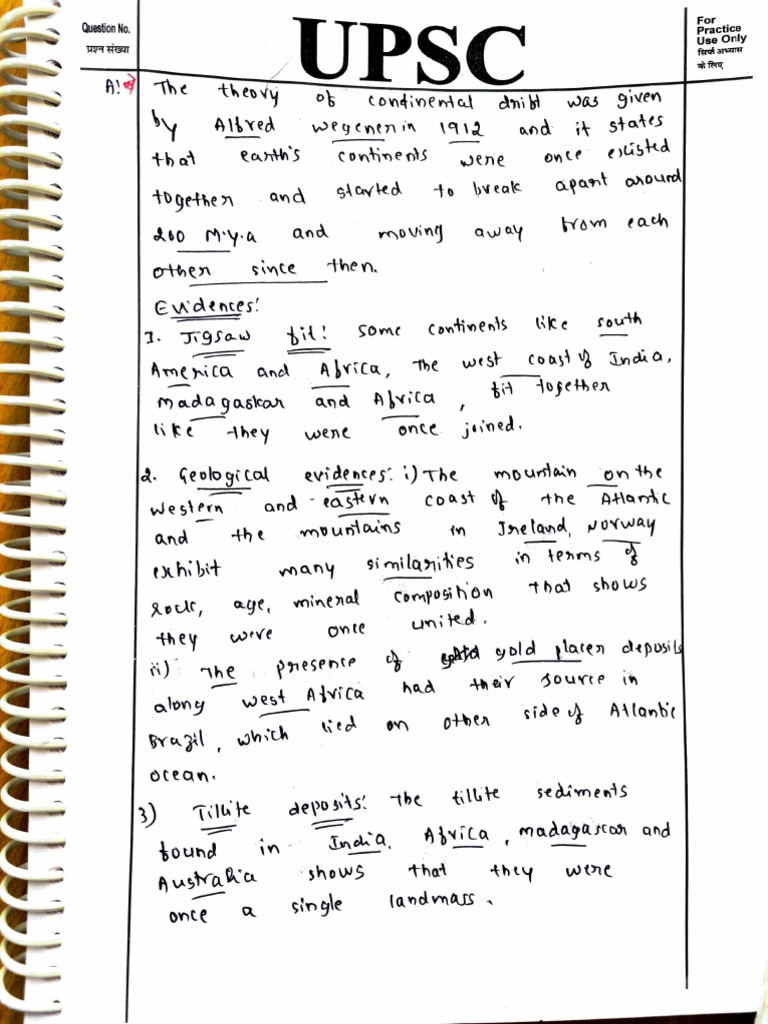 Question No.
प्रश्न संख्या
UPSC
For
Practice
Use Only
सिर्फ अभ्यास
के लिए
A! The theory of continental drift was given
by Alfred wegener in 1912 and it states
that earth's continents were once existed
together and started to break apart around
200 M.y.a and moving away from each
other since then.
Evidences:
1. Jigsaw fit: some continents like south
America and Africa, The west coast of India,
madagaskar and Africa, fit together
like they were once joined.
2. Geological evidences: i) The mountain on the
western and eastern coast of the Atlantic
and the mountains in Ireland, Norway
exhibit many similarities in terms of
rock, age, mineral composition that shows
they were once united.
ii) The presence of gold placer deposits
along west Africa had their source in
Brazil, which lied on other side of Atlantic
ocean.
3) Tillite deposits: The tillite sediments
found in India, Africa, madagascar and
Australia shows that they were
once a single landmass.